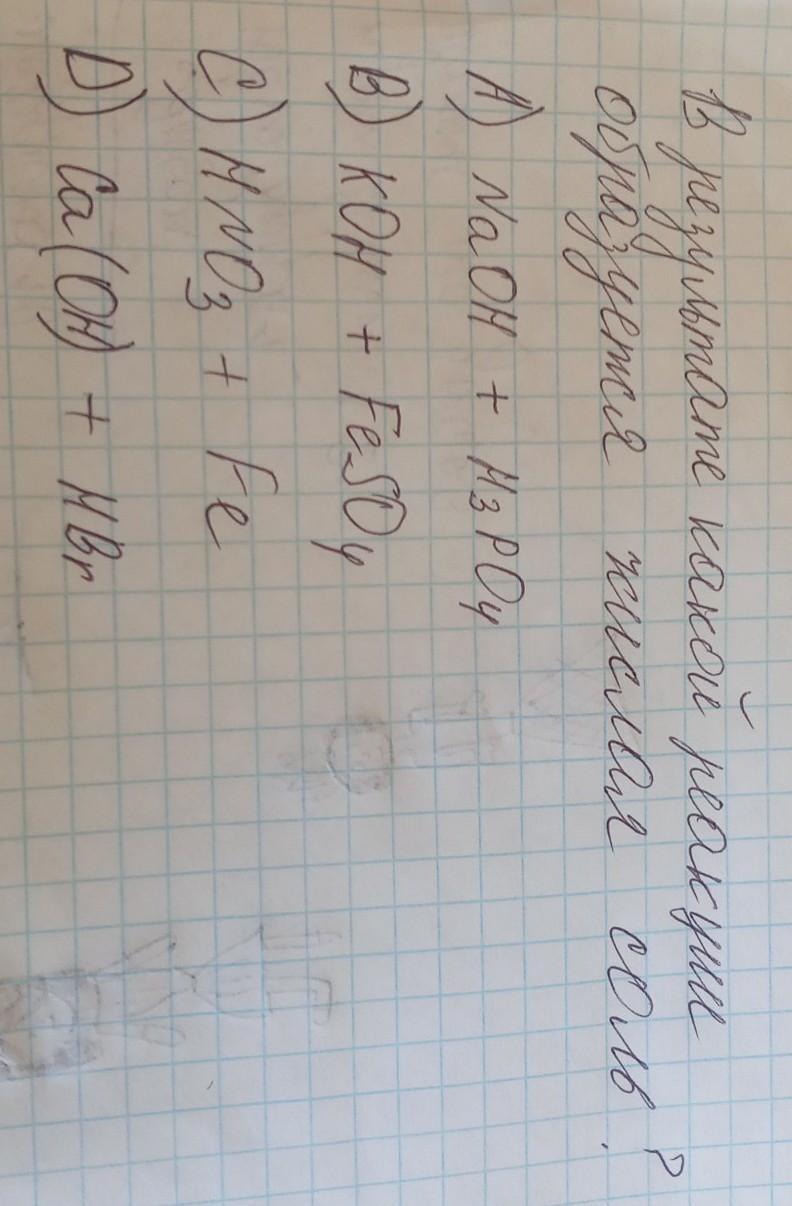 В результате какой реакции
образуется кислая соль?
A) NaOH + H₃PO₄
B) KOH + FeSO₄
C) HNO₃ + Fe
D) Ca(OH) + HBr